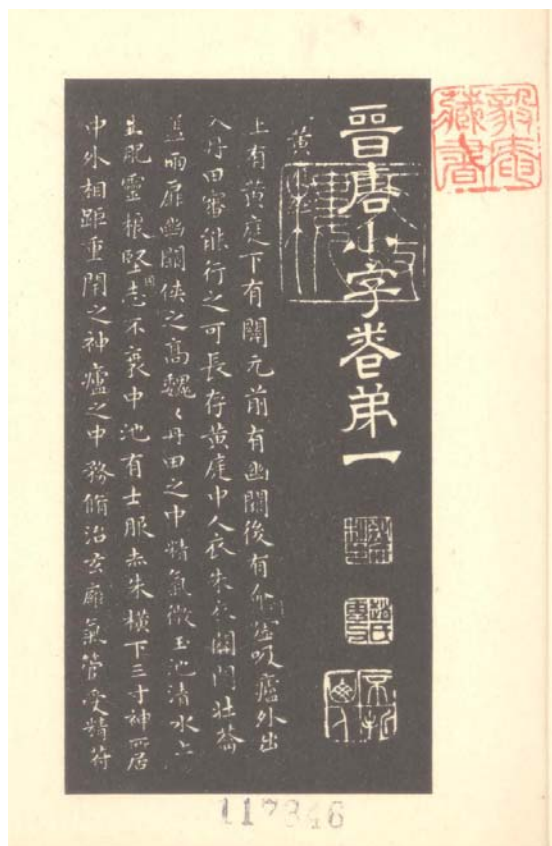 晉唐小字卷弟一
黃
上有黃庭下有關元前有幽闕後有命噓吸廬外出
入丹田審能行之可長存黃庭中人衣朱衣關門壯蘥
蓋兩扉幽闕俠之高魏〻丹田之中精氣微玉池清水上
生肥靈根堅志不衰中池有士服赤朱橫下三寸神所居
中外相距重閉之神廬之中務脩治玄廱氣管受精符
毅庵
藏書
117346